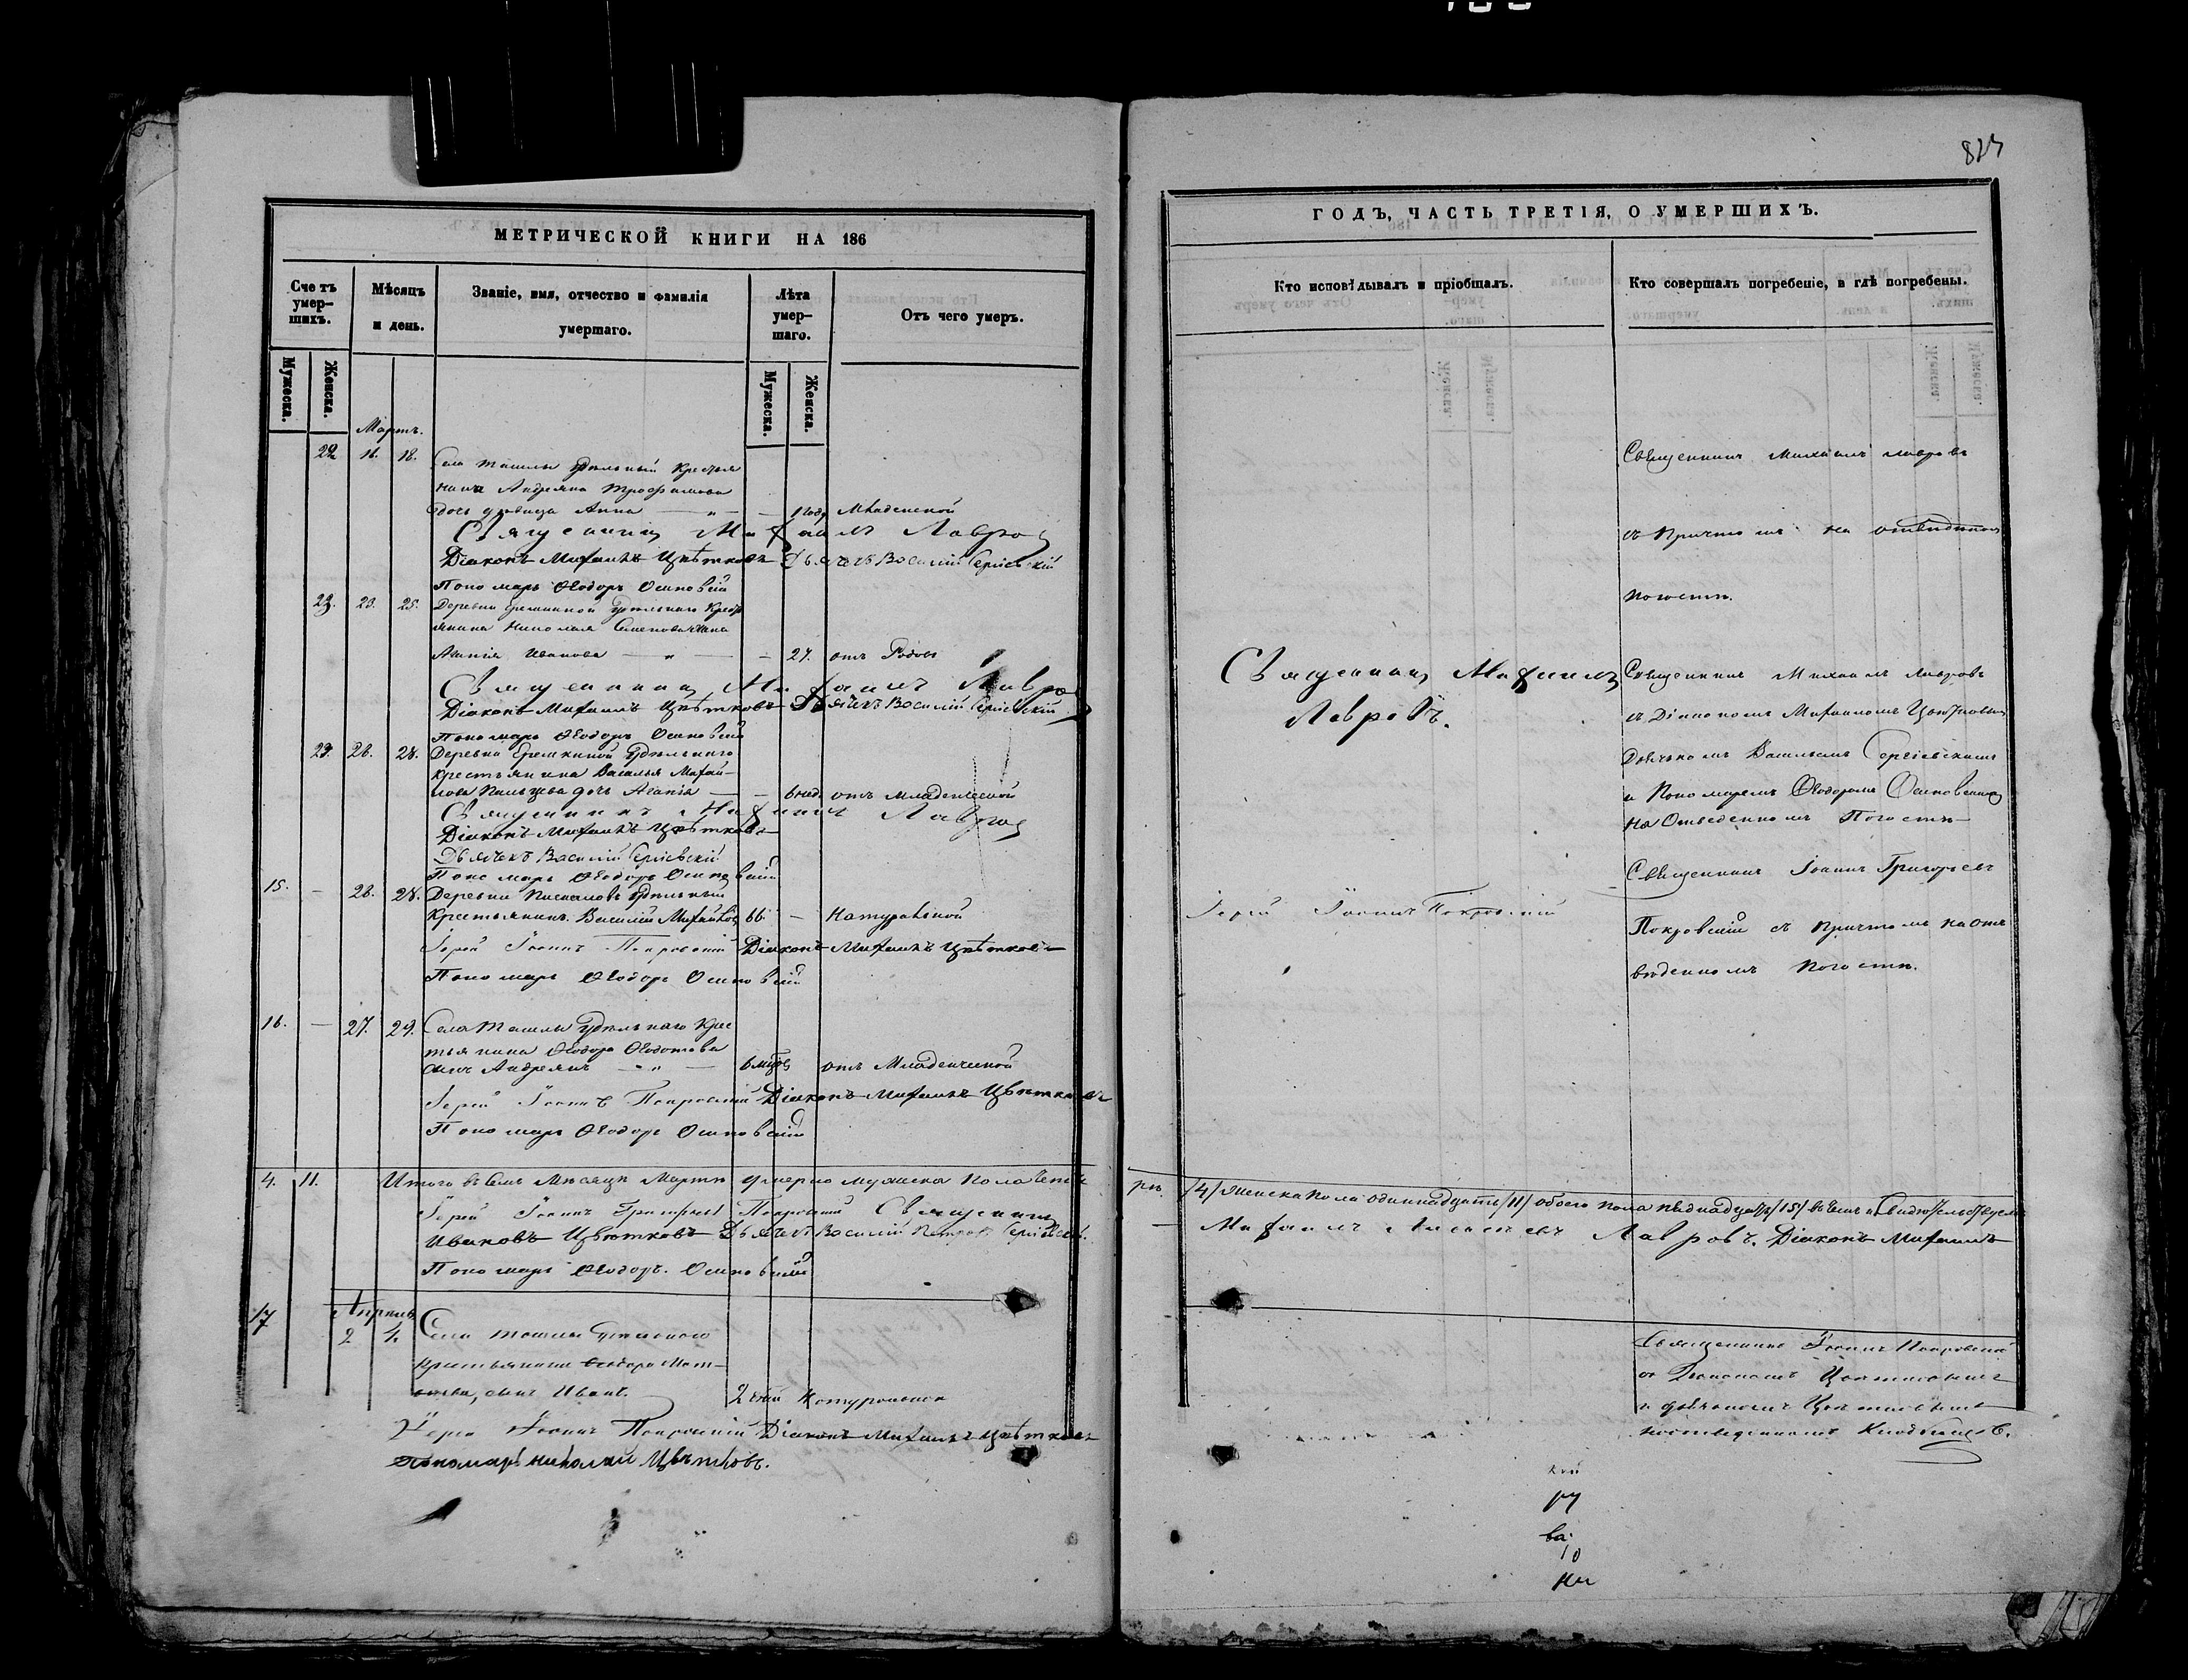 827
МЕТРИЧЕСКОЙ КНИГИ НА 186
Счетъ умер-
шихъ.
Мѣсяцъ
и день.
Званіе, имя, отчество и фамилія
умершаго.
Лѣта
умер-
шаго.
Отъ чего умеръ.
Мужеска.
Женска.
Мужеска.
Женска.
Мартъ.
22 16. 18. Села Ташлы удѣльный Крестья
нина Андреяна Трофимова
дочь дѣвица Анна — 1 году Младенской
Священникъ Михаилъ Лавровъ
Діаконъ Михаилъ Цвѣтковъ Дьячекъ Василій Сергіевскій
Пономарь Ѳеодоръ Осиновскій
23. 25. Деревни удѣльнаго Крестья
янина Николая Семенова жена
Иванова — 27. отъ Родовъ
Священникъ Михаилъ Лавровъ
Діаконъ Михаилъ Цвѣтковъ Дьячекъ Василій Сергіевскій
Пономарь Ѳеодоръ Осиновскій
26. 28. Деревни Еремкиной Удѣльнаго
Крестьянина Василья Михай-
лова дочь Агапія — 6 нед. отъ младенческой
Священникъ Михаилъ Лавровъ
Діаконъ Михаилъ Цвѣтковъ
Дьячекъ Василій Сергіевскій
Пономарь Ѳеодоръ Осиновскій
15. — 26. 28. Деревни Пискаловъ удѣльный
Крестьянинъ Василій Михайловъ 66. — Натуральной
Іерей Іоаннъ Покровскій Діаконъ Михаилъ Цвѣтковъ
Пономарь Ѳеодоръ Осиновскій
16. — 27. 29. Села Ташлы Удѣльнаго Крес
тьянина Ѳеодора Ѳедотова
сынъ Андреянъ — 6 мѣся отъ Младенческой
Іерей Іоаннъ Покровскій Діаконъ Михаилъ Цвѣтковъ
Пономарь Ѳеодоръ Осиновскій
4. 11. Итого въ семъ Мѣсяцѣ Мартѣ умерло мужеска пола четы
Іерей Іоаннъ Григорьевъ Покровскій Священникъ
Ивановъ Цвѣтковъ Дьячекъ Василій Петровъ Сергіевскій.
Пономарь Ѳеодоръ Осиновскій
Апрѣль
17 2 4. Села Ташлы Удѣльнаго
крестьянина Ѳеодора Мат-
вѣева, сынъ Иванъ. 2 Натуральной
Іерей Іоаннъ Покровскій Діаконъ Михаилъ Цвѣтковъ
Пономарь Николай Цвѣтковъ.
ГОДЪ, ЧАСТЬ ТРЕТІЯ, О УМЕРШИХЪ.
Кто исповѣдывалъ и пріобщалъ.
Кто совершалъ погребеніе, и гдѣ погребены.
Священникъ Михаилъ Лавровъ
съ Причтомъ на отведенномъ
погостѣ.
Священникъ Михаилъ
Лавровъ.
Священникъ Михаилъ Лавровъ
съ Діакономъ Михаиломъ Цвѣтковымъ
Дьячкомъ Васильемъ Сергіевскимъ
и Пономаремъ Ѳеодоромъ Осиновскимъ
на Отведенномъ Погостѣ
Іерей Іоаннъ Покровскій
Священникъ Іоаннъ Григорьевъ
Покровскій съ причтомъ на от
веденномъ погостѣ.
ре /4/ женска пола одиннадцать /11/ обоего пола пятнадцать /15/ въ чемъ и свидѣтельствуемъ
Михаилъ Алексѣевъ Лавровъ. Діаконъ Михаилъ
Священникъ Іоаннъ Покровскій
съ Діакономъ Цвѣтковымъ
и дьячкомъ Цвѣтковымъ
на отведенномъ Кладбищѣ.